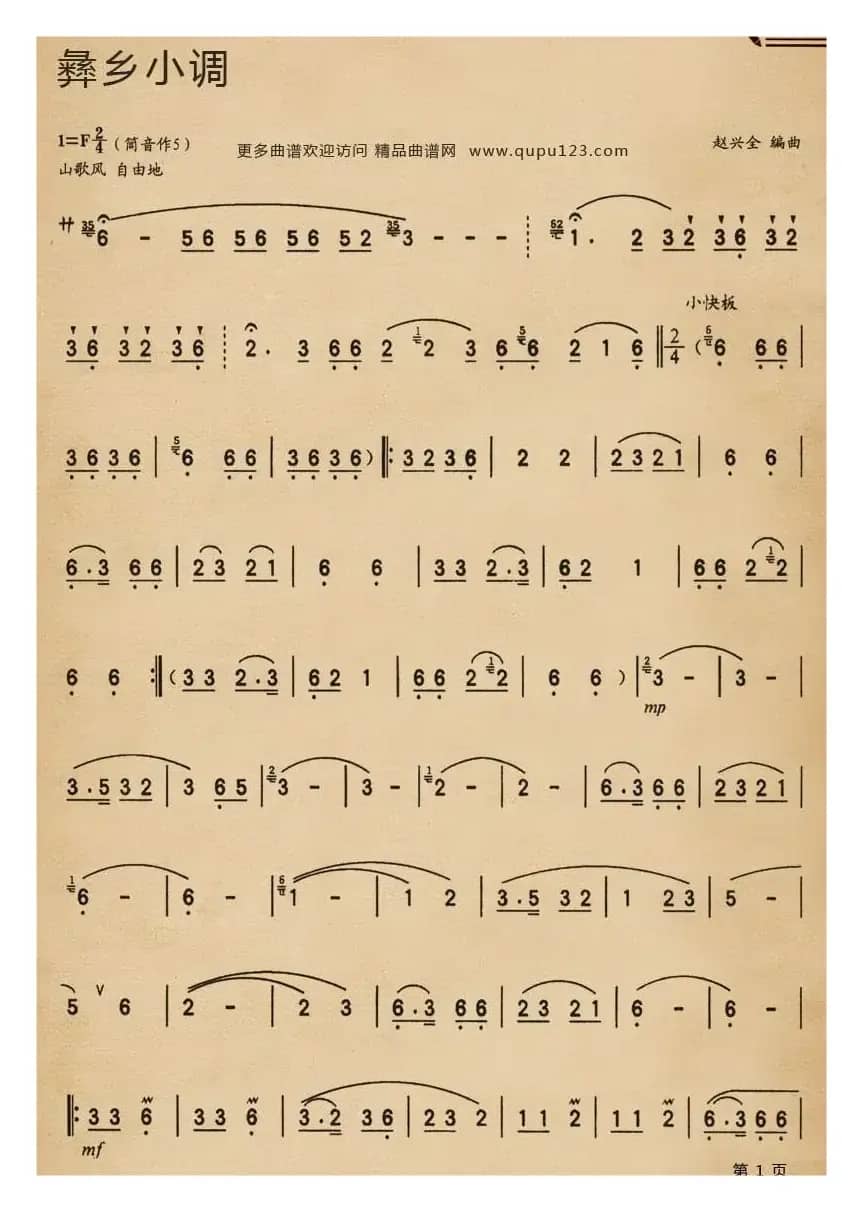 彝乡小调
1=F 2/4 (筒音作5)
更多曲谱欢迎访问 精品曲谱网 www.qupu123.com
赵兴全 编曲
山歌风 自由地
サ 6 - 56 56 56 52 3 - - - 1. 2 32 36 32
小快板
36 32 36 2. 3 66 2 2 3 6 6 2 1 6 ‖ 2/4 ( 6 66 |
3636 | 6 66 | 3636 ) ‖: 3236 | 2 2 | 2321 | 6 6 |
6.3 66 | 23 21 | 6 6 | 33 2.3 | 62 1 | 66 2 2 |
6 6 :‖ ( 33 2.3 | 62 1 | 66 2 2 | 6 6 ) | 3 - | 3 - |
mp
3.5 32 | 3 65 | 3 - | 3 - | 2 - | 2 - | 6.3 66 | 2321 |
6 - | 6 - | 1 - | 1 2 | 3.5 32 | 1 23 | 5 - |
5 ∨ 6 | 2 - | 2 3 | 6.3 66 | 23 21 | 6 - | 6 - |
‖: 33 6 | 33 6 | 3.2 36 | 23 2 | 11 2 | 11 2 | 6.3 66 |
mf
第 1 页